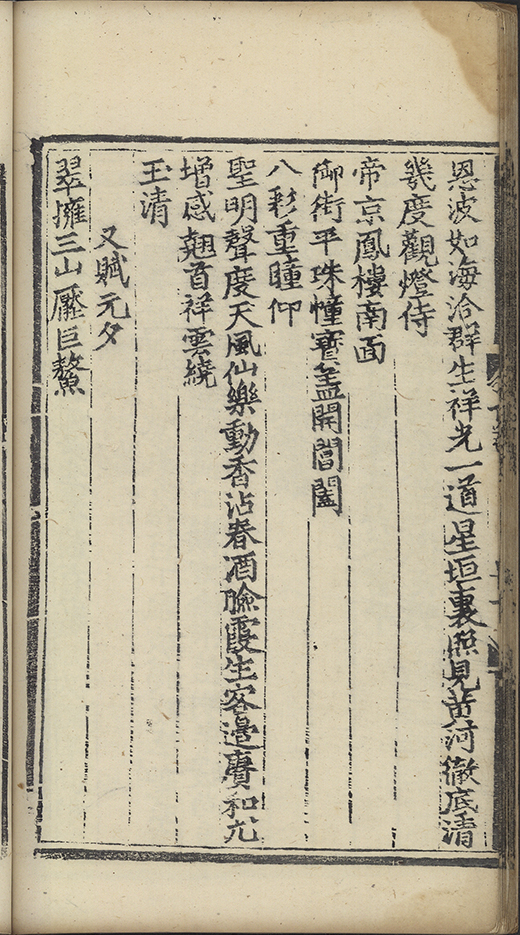 恩波如海洽群生祥光一道星垣裏照見黄河徹底清
幾度觀燈侍
帝京鳳樓南面
御街平珠幢寶盖開閶闔
八彩重瞳仰
聖明聲度天風仙樂動香沾春酒臉霞生客邊賡和尤
增感翹首祥雲繞
玉清
又賦元夕
翠擁三山壓巨鰲